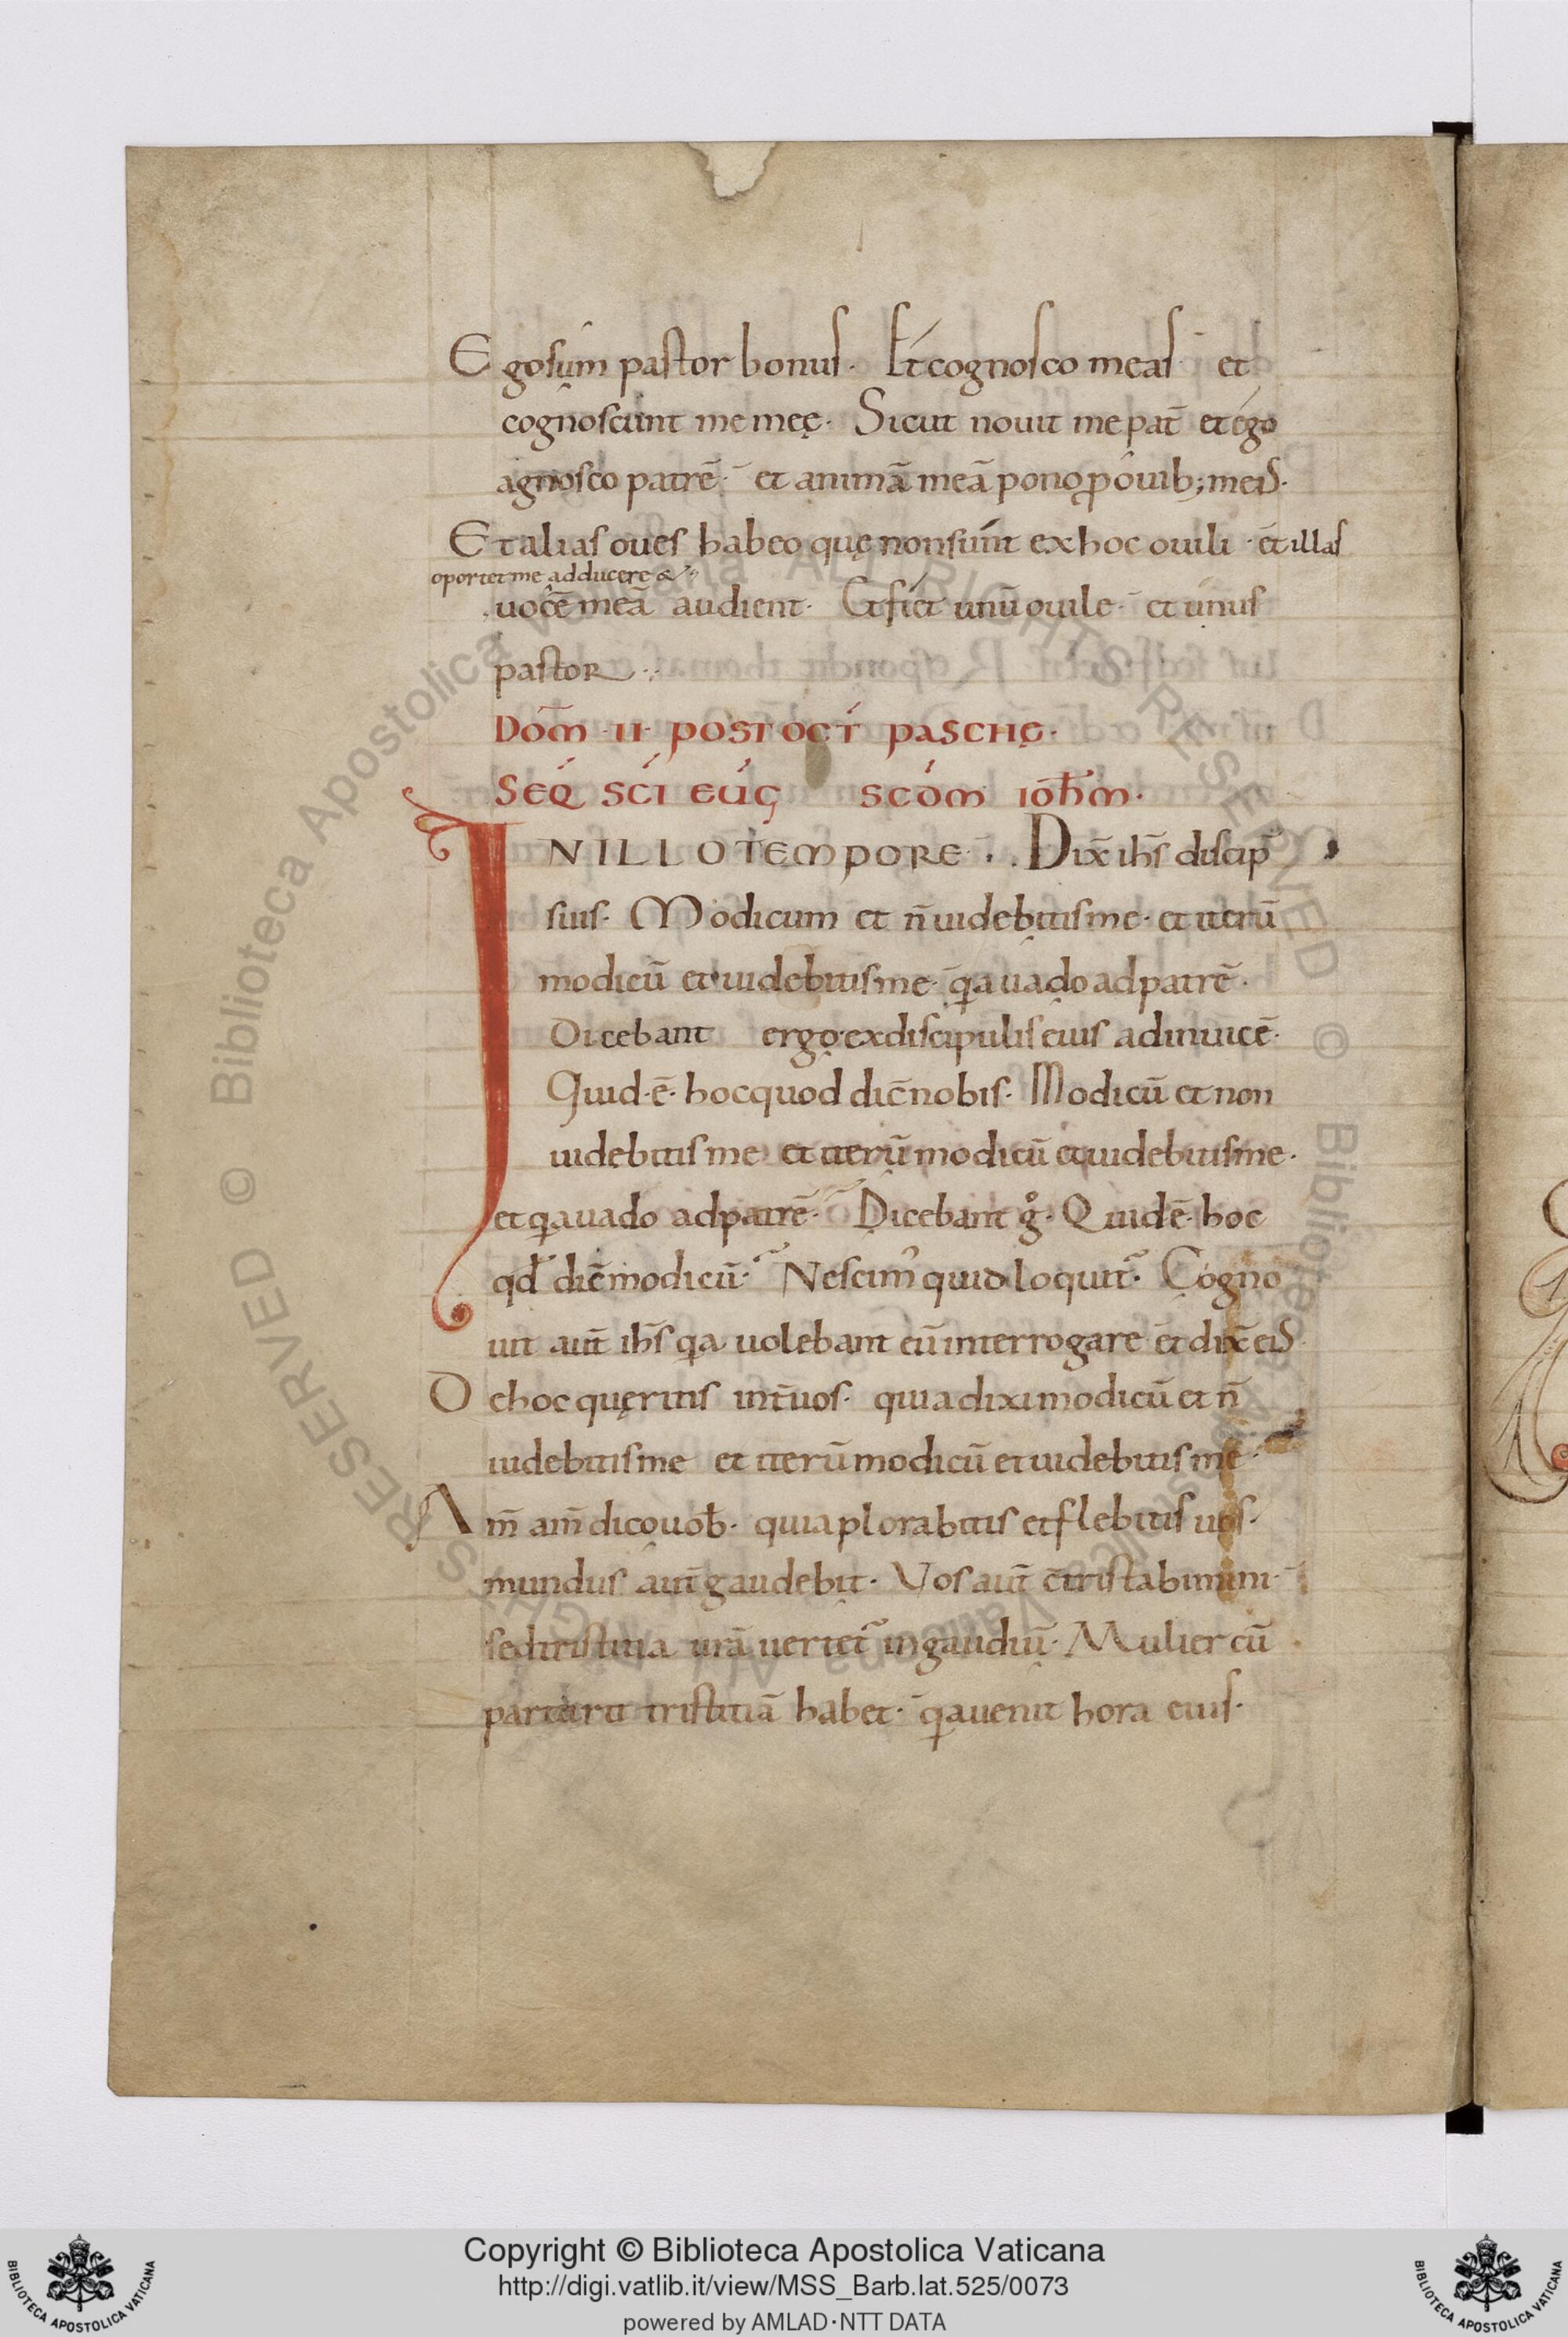 Ego sum pastor bonus. Et cognosco meas et
cognoscunt me meę. Sicut nouit me pat̄ et ego
agnosco patrē. et animā meā pono ꝓ ouib; meis.
Et alias oues habeo quę non sunt ex hoc ouili. et illas
oportet me adducere &
uocē meā audient. Et fiet unū ouile. et unus
pastor.
Dom̄ II post oct̄ paschę.
Seq̄ sc̄i euḡ scd̄m ioh̄m.
IN ILLO TEMPORE. Dix̄ ih̄s discip̄
suis. Modicum et n̄ uidebitis me. et iterū
modicū et uidebitis me. q̄a uado ad patrē.
Dicebant ergo ex discipulis eius ad inuicē.
Quid ē hoc quod dic̄ nobis. Modicū et non
uidebitis me et iterū modicū et uidebitis me.
et q̄a uado ad patrē. Dicebant g̊. Quid ē hoc
qd̄ dic̄ modicū. Nescim' quid loquit̄. Cogno
uit aut̄ ih̄s q̄a uolebant eū interrogare et dix̄ eis
De hoc quęritis int̄ uos. quia dixi modicū et n̄
uidebitis me et iterū modicū et uidebitis me.
Am̄ am̄ dico uob̄. quia plorabitis et flebitis uos.
mundus aut̄ gaudebit. Vos aut̄ c̄tristabimini.
sed tristitia urā uertet̄ in gaudiū. Mulier cū
parturit tristitiā habet. q̄a uenit hora eius.
© Biblioteca Apostolica Vaticana ALL RIGHTS RESERVED © Biblioteca Apostolica Vaticana ALL RIGHTS RESERVED
Copyright © Biblioteca Apostolica Vaticana
http://digi.vatlib.it/view/MSS_Barb.lat.525/0073
powered by AMLAD·NTT DATA
BIBLIOTECA APOSTOLICA VATICANA
BIBLIOTECA APOSTOLICA VATICANA